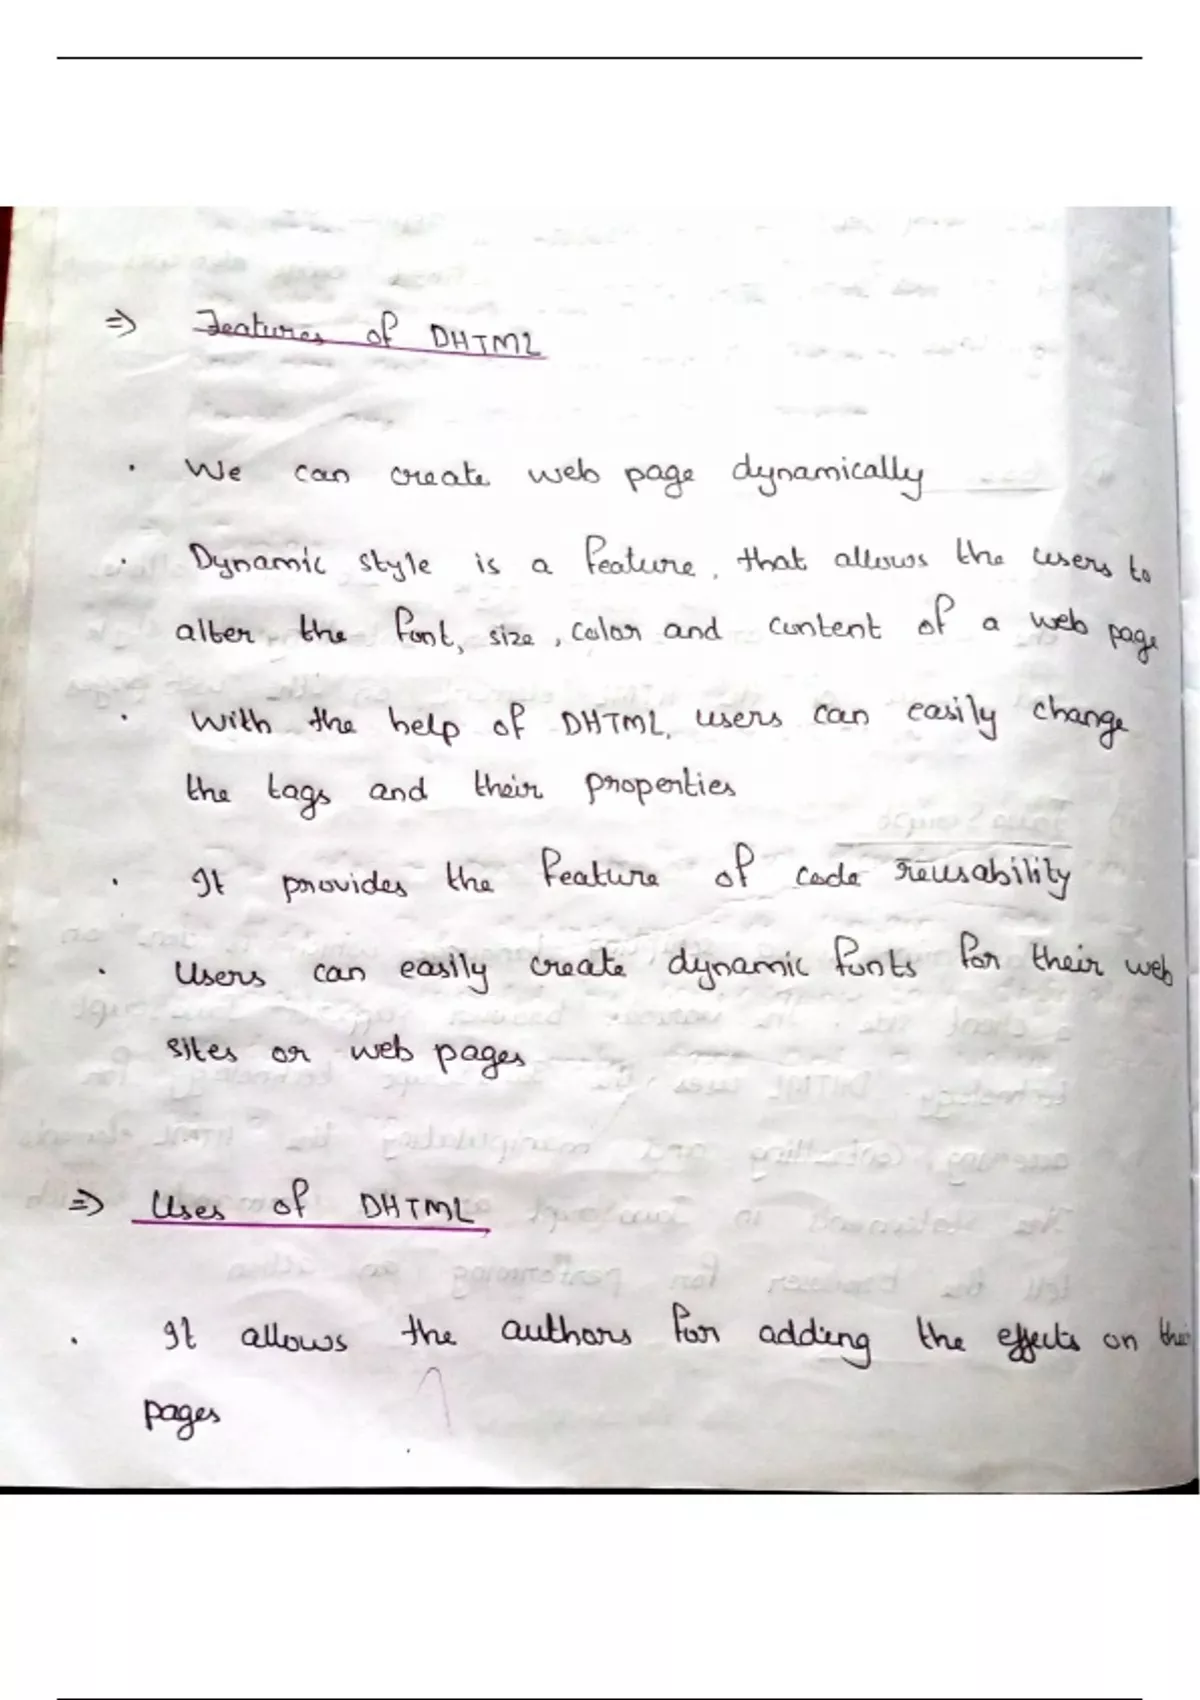 ⇒ Features of DHTML
• We can create web page dynamically
• Dynamic style is a feature, that allows the users to
alter the font, size, color and content of a web page
• With the help of DHTML, users can easily change
the tags and their properties
• It provides the feature of code reusability
• Users can easily create dynamic fonts for their web
sites or web pages
⇒ Uses of DHTML
• It allows the authors for adding the effects on their
pages